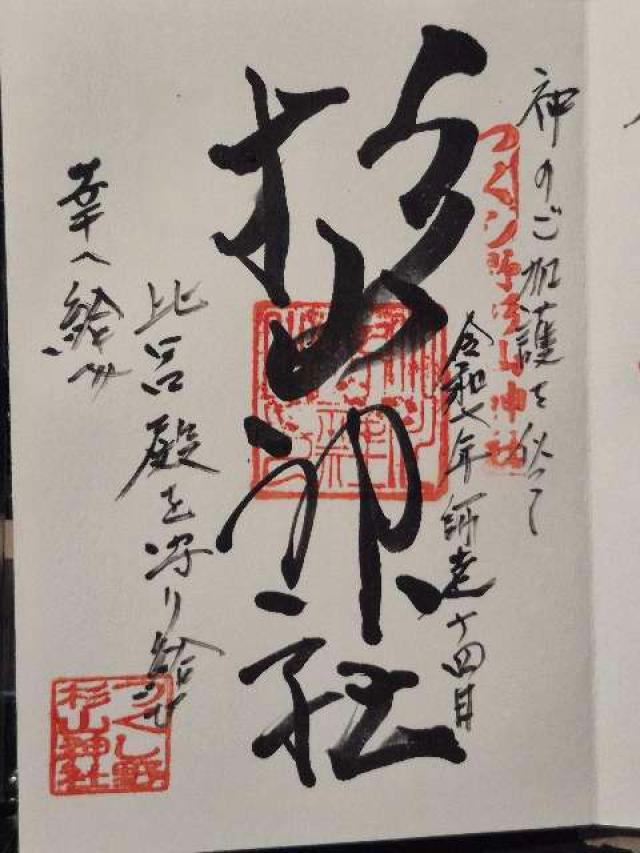 神のご加護を以て
つくし野杉山神社
令和七年師走十四日
杉山神社
比呂殿を守り給せ
幸へ給へ
つくし野
杉山神社